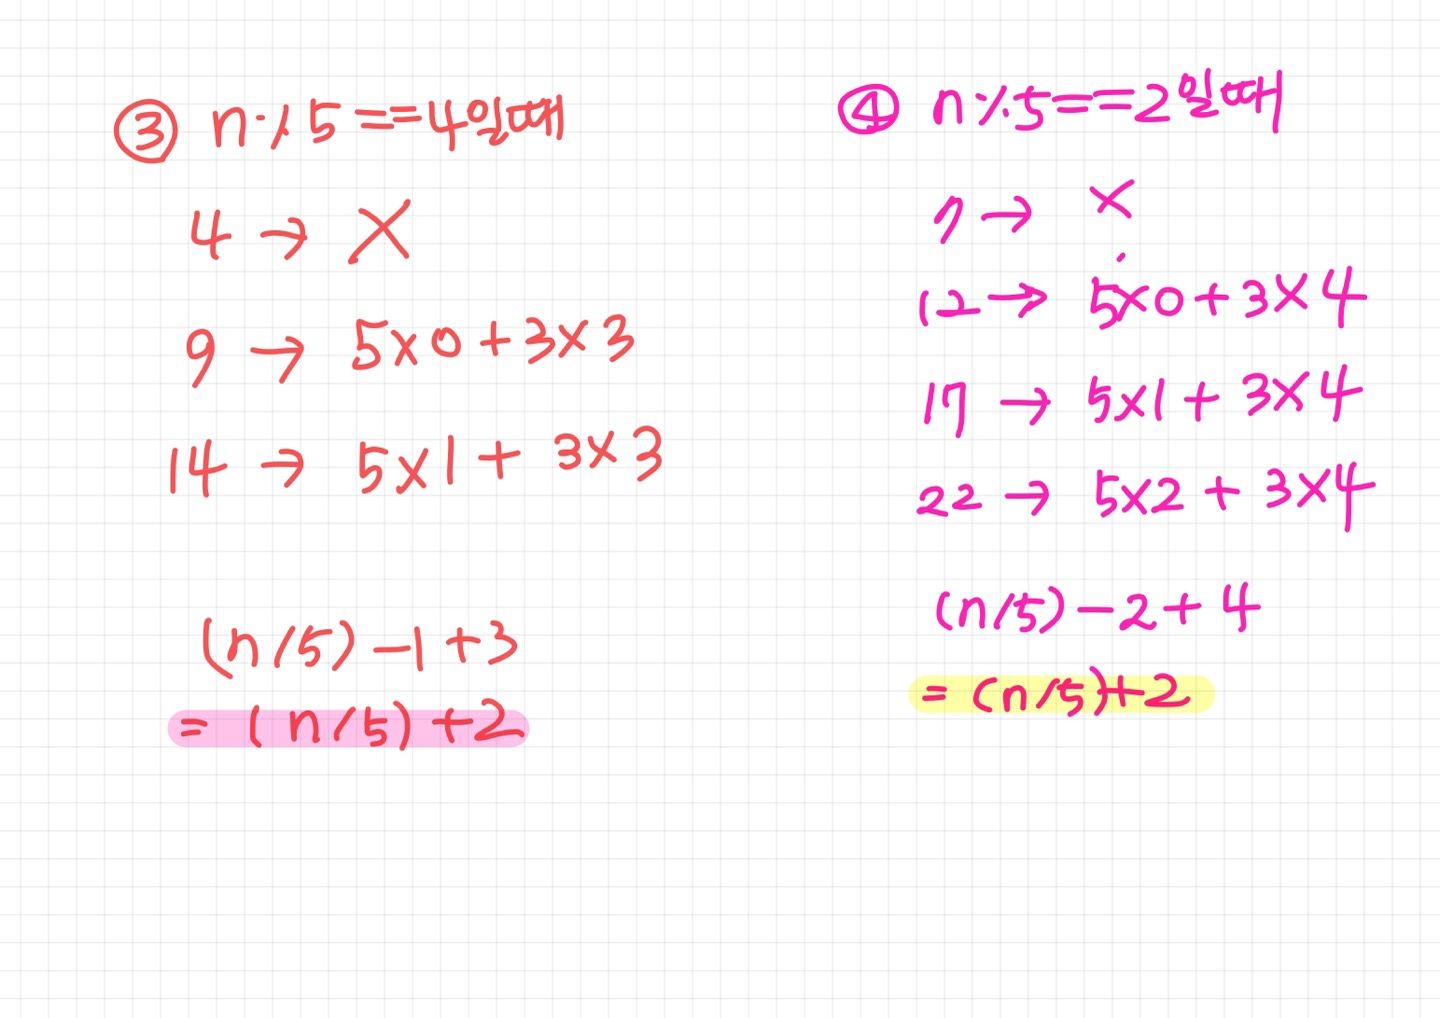 ③ n%5==4일때
4 → X
9 → 5×0+3×3
14 → 5×1+3×3
(n/5)-1+3
= (n/5)+2
④ n%5==2일때
7 → X
12 → 5×0+3×4
17 → 5×1+3×4
22 → 5×2+3×4
(n/5)-2+4
= (n/5)+2